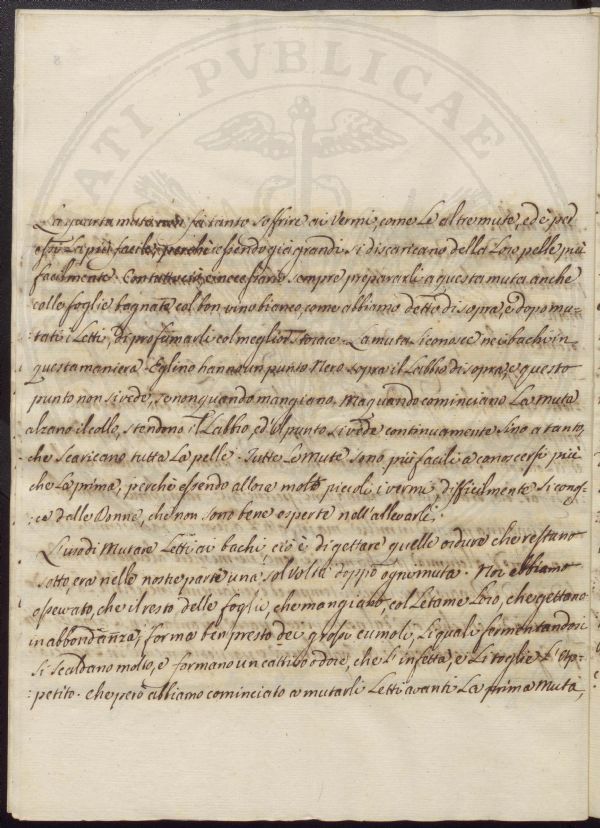 8
ATI PVBLICAE
La quarta muta non fà tanto soffrire ai Vermi, come Le altre mute, ed è per
essi La più facile, perchè essendo già grandi si discaricano della Loro pelle più
facilmente. Contuttociò è necessario sempre prepararli a questa muta anche
colle foglie bagnate col bon vino bianco, come abbiamo detto di sopra, e dopo mu-
:tati i Letti, di profumarli col meglior storace. La muta si conosce nei bachi in
questa maniera. Eglino hanno un punto Nero sopra il Labbro di sopra, e questo
punto non si vede, se non quando mangiano, ma quando cominciano La muta
alzano il collo, stendono il Labbro, ed il punto si vede continuamente sino a tanto,
che scaricano tutta La pelle. Tutte Le mute sono più facili a conoscersi più
che La prima, perchè essendo allora molto piccoli i vermi, difficilmente si cono-
:sce dalle Donne, che non sono bene esperte nell'allevarli.
L'uso di Mutare Letti ai bachi, ciò è di gettare quelle ordure che restano
sotto, era nelle nostre parte una sol volta doppo ogni muta. Noi abbiamo
osservato, che il resto delle foglie, che mangiano, col Letame Loro, che gettano
in abbondanza, forma ben presto dei grossi cumoli, Li quali fermentandosi
si scaldano molto, e formano un cattivo odore, che L'infetta, e Li toglie L'ap-
:petito. che però abbiamo cominciato a mutarli Letti avanti La prima Muta,